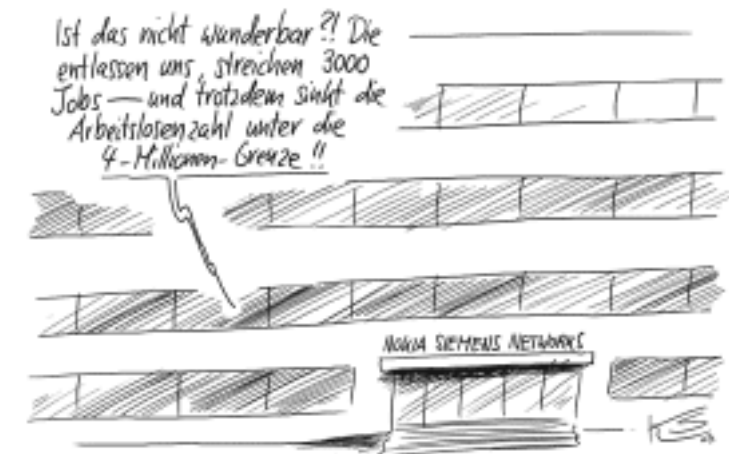 Ist das nicht wunderbar?! Die
entlassen uns, streichen 3000
Jobs — und trotzdem sinkt die
Arbeitslosenzahl unter die
4-Millionen-Grenze!!
NOKIA SIEMENS NETWORKS